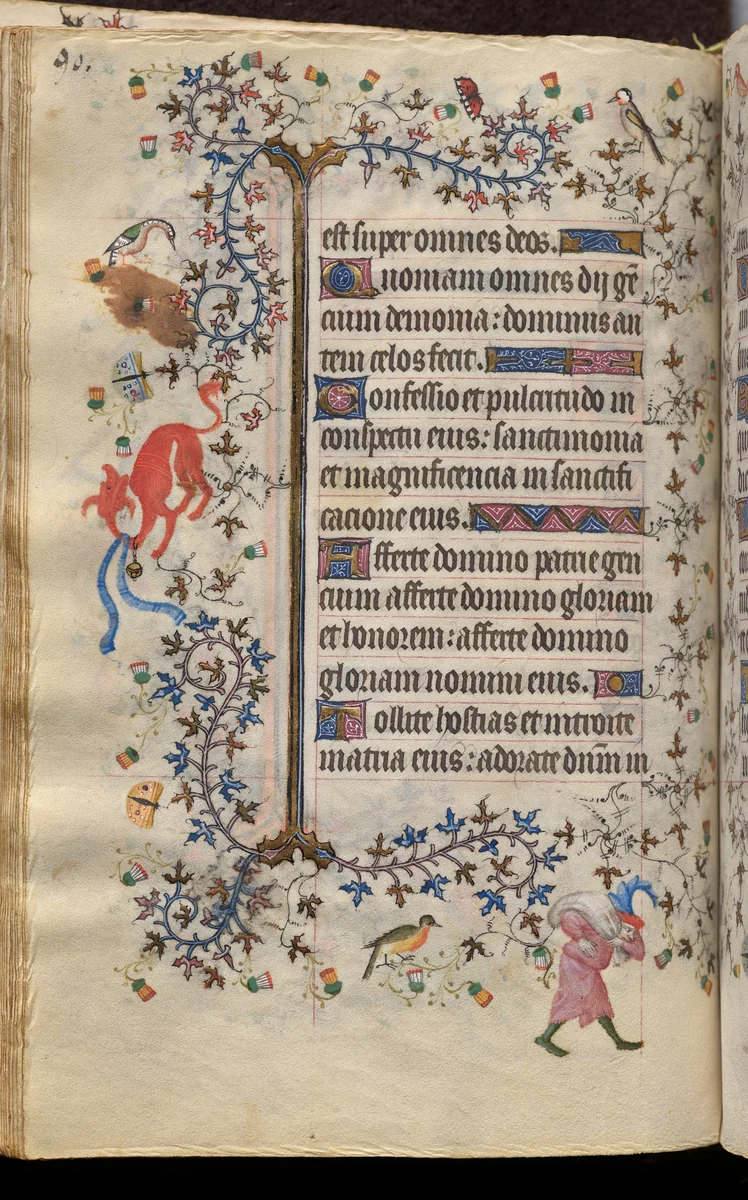 90.
est super omnes deos.
Quoniam omnes dij gē
cium demonia: dominus au
tem celos fecit.
Confessio et pulcritudo in
conspectu eius: sanctimonia
et magnificencia in sanctifi
cacione eius.
Afferte domino patrie gen
cium afferte domino gloriam
et honorem: afferte domino
gloriam nomini eius.
Tollite hostias et introite
in atria eius: adorate dn̄m in